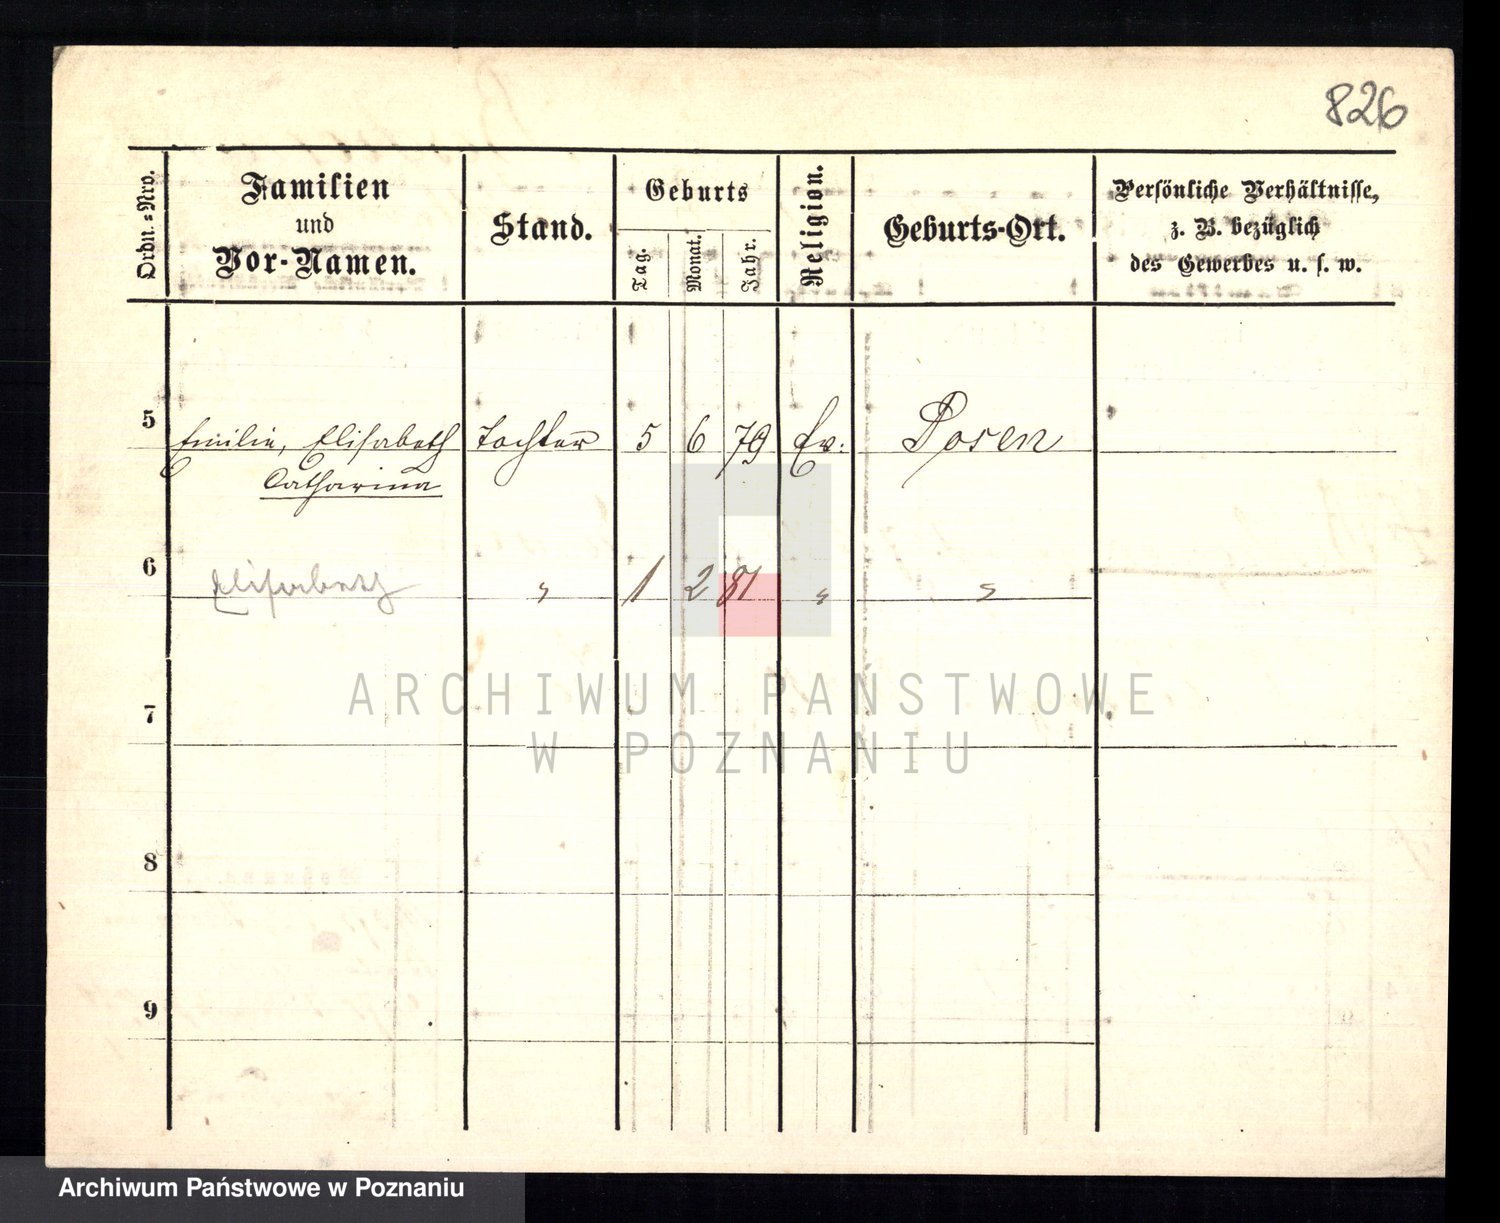 826
Ordn.=Nro.
Familien
und
Vor-Namen.
Stand.
Geburts
Tag.
Monat.
Jahr.
Religion.
Geburts-Ort.
Persönliche Verhältnisse,
z. B. bezüglich
des Gewerbes u. s. w.
5 Emilie, Elisabeth Tochter 5 6 79 Ev: Posen
Catharina
6 Elisabeth " 1 2 81 " "
7
8
9
ARCHIWUM PAŃSTWOWE
W POZNANIU
Archiwum Państwowe w Poznaniu